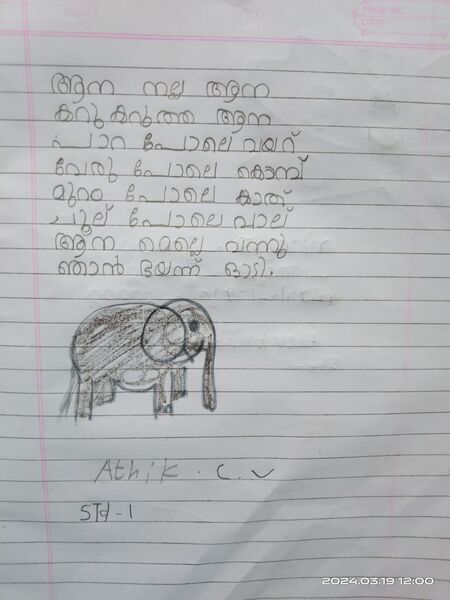 PAGE NO.
DATE
ആന നല്ല ആന
കറുകറുത്ത ആന
പാറ പോലെ വയറ്
വേരു പോലെ കൊമ്പ്
മുറം പോലെ കാത്
ചൂല് പോലെ വാല്
ആന മെല്ലെ വന്നു
ഞാൻ ഭയന്ന് ഓടി.
Athik . C. V
STd - 1
2024.03.19 12:00